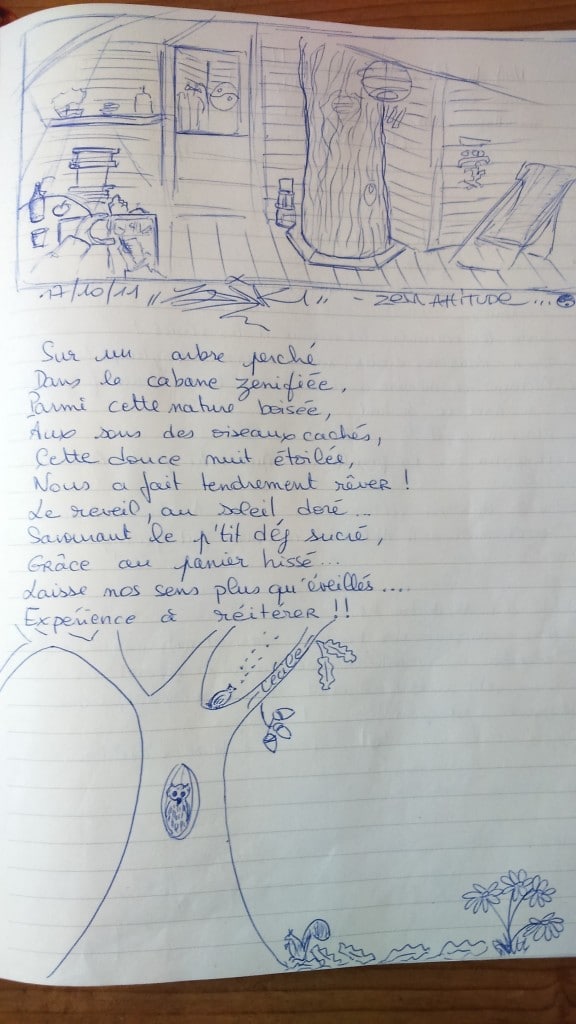 17/10/11 " " - Zen Attitude...
Sur un arbre perché
Dans le cabane zenifiée,
Parmi cette nature boisée,
Aux sons des oiseaux cachés,
Cette douce nuit étoilée,
Nous a fait tendrement rêver !
Le reveil, au soleil doré...
Savourant le p'tit déj sucré,
Grâce au panier hissé...
Laisse nos sens plus qu'éveillés....
Expérience à réitérer !!